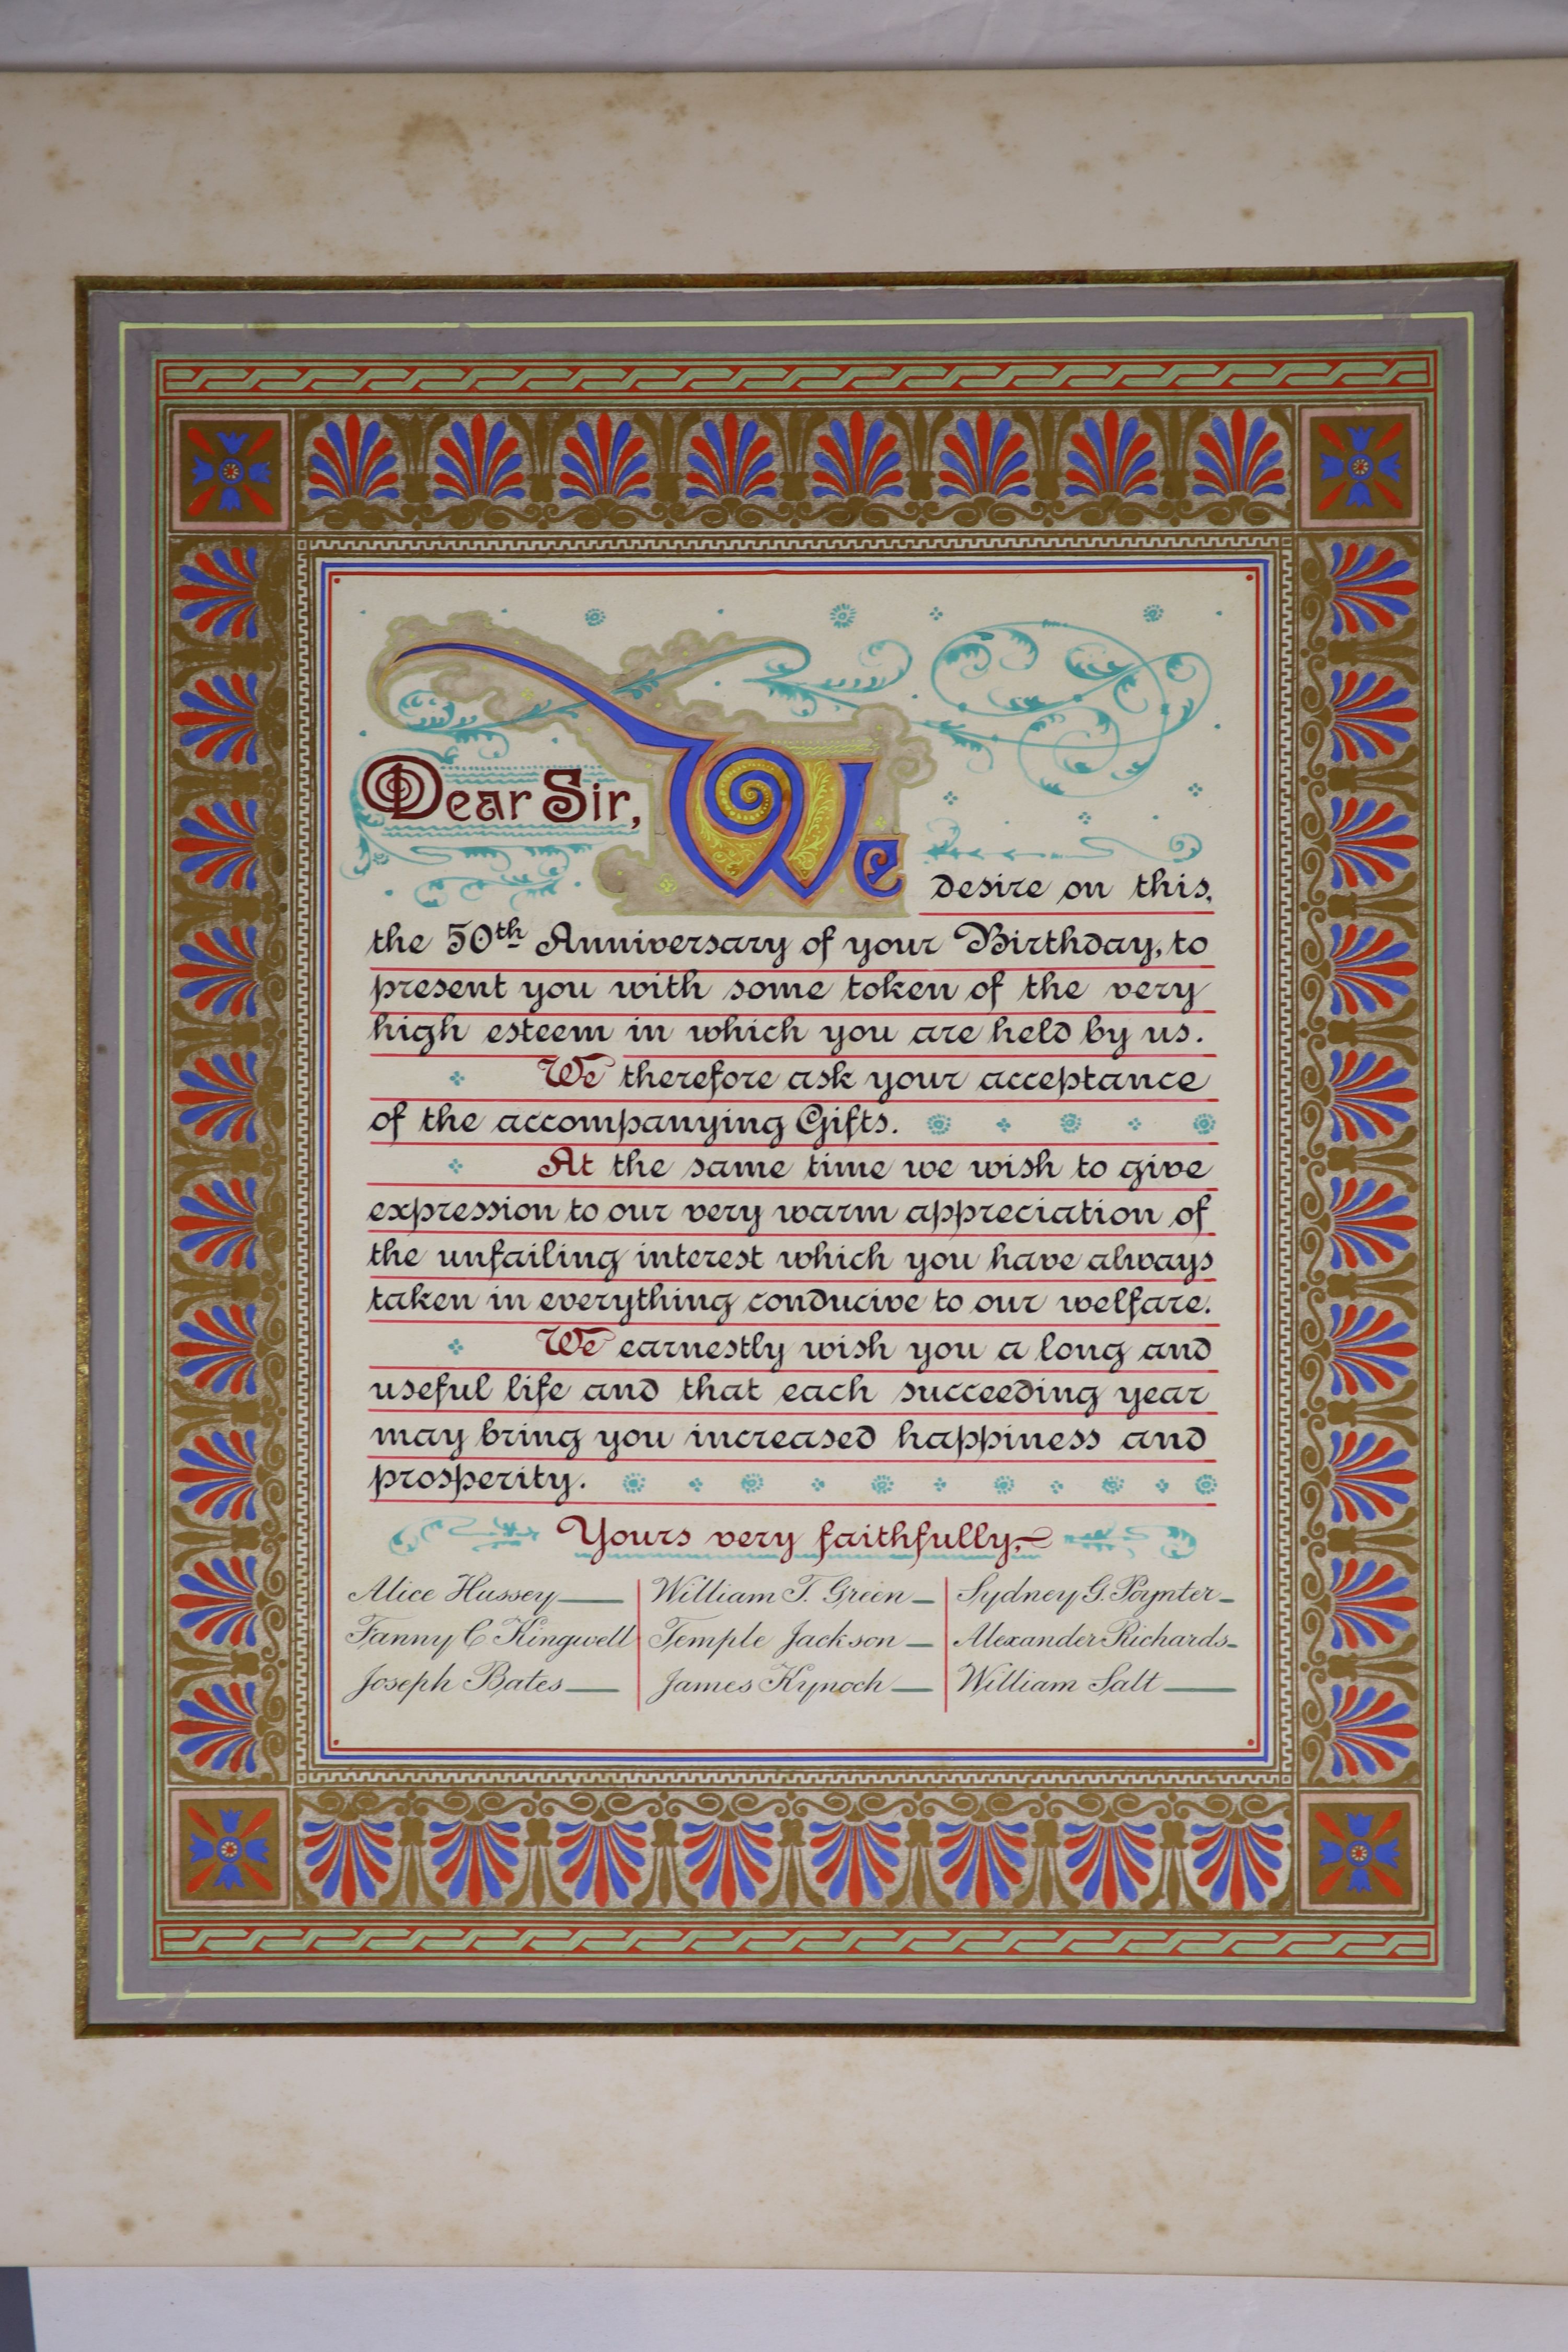 Dear Sir, We
desire on this,
the 50th Anniversary of your Birthday, to
present you with some token of the very
high esteem in which you are held by us.
We therefore ask your acceptance
of the accompanying Gifts.
At the same time we wish to give
expression to our very warm appreciation of
the unfailing interest which you have always
taken in everything conducive to our welfare.
We earnestly wish you a long and
useful life and that each succeeding year
may bring you increased happiness and
prosperity.
Yours very faithfully,—
Alice Hussey — William T. Green — Sydney G. Poynter —
Fanny C Kingwell Temple Jackson — Alexander Richards —
Joseph Bates — James Kynoch — William Salt —